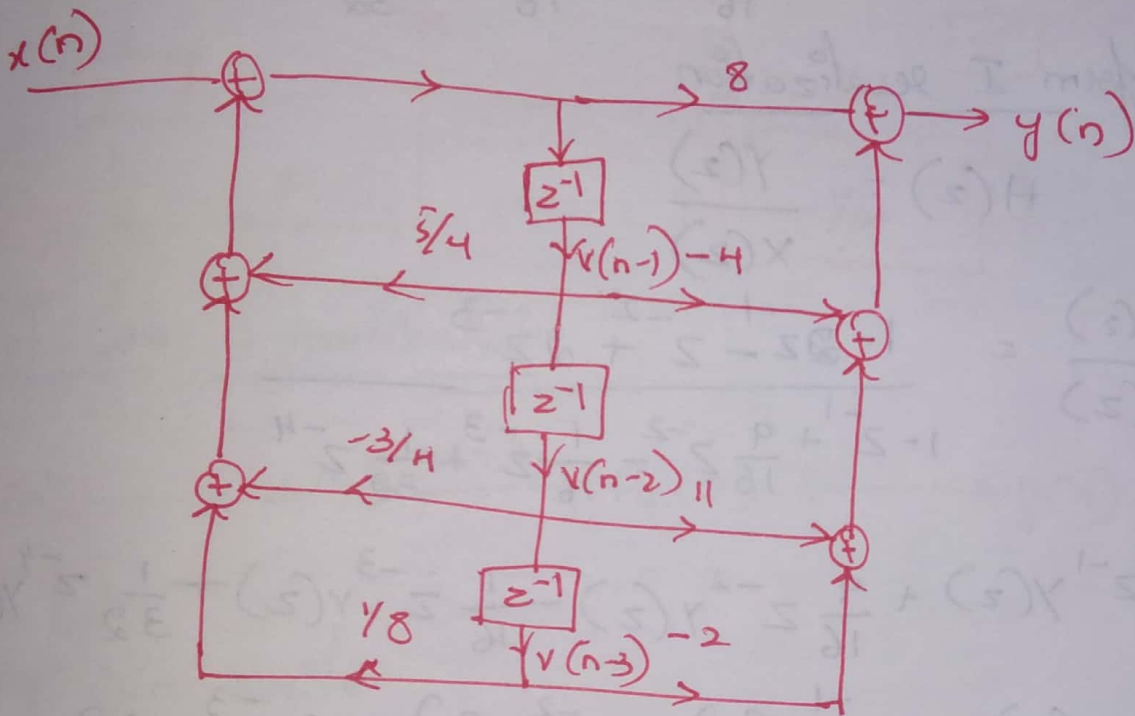 x(n)
+
8
+
y(n)
z⁻¹
5/4
v(n-1)
-4
+
+
z⁻¹
-3/4
v(n-2)
11
+
+
z⁻¹
1/8
v(n-3)
-2